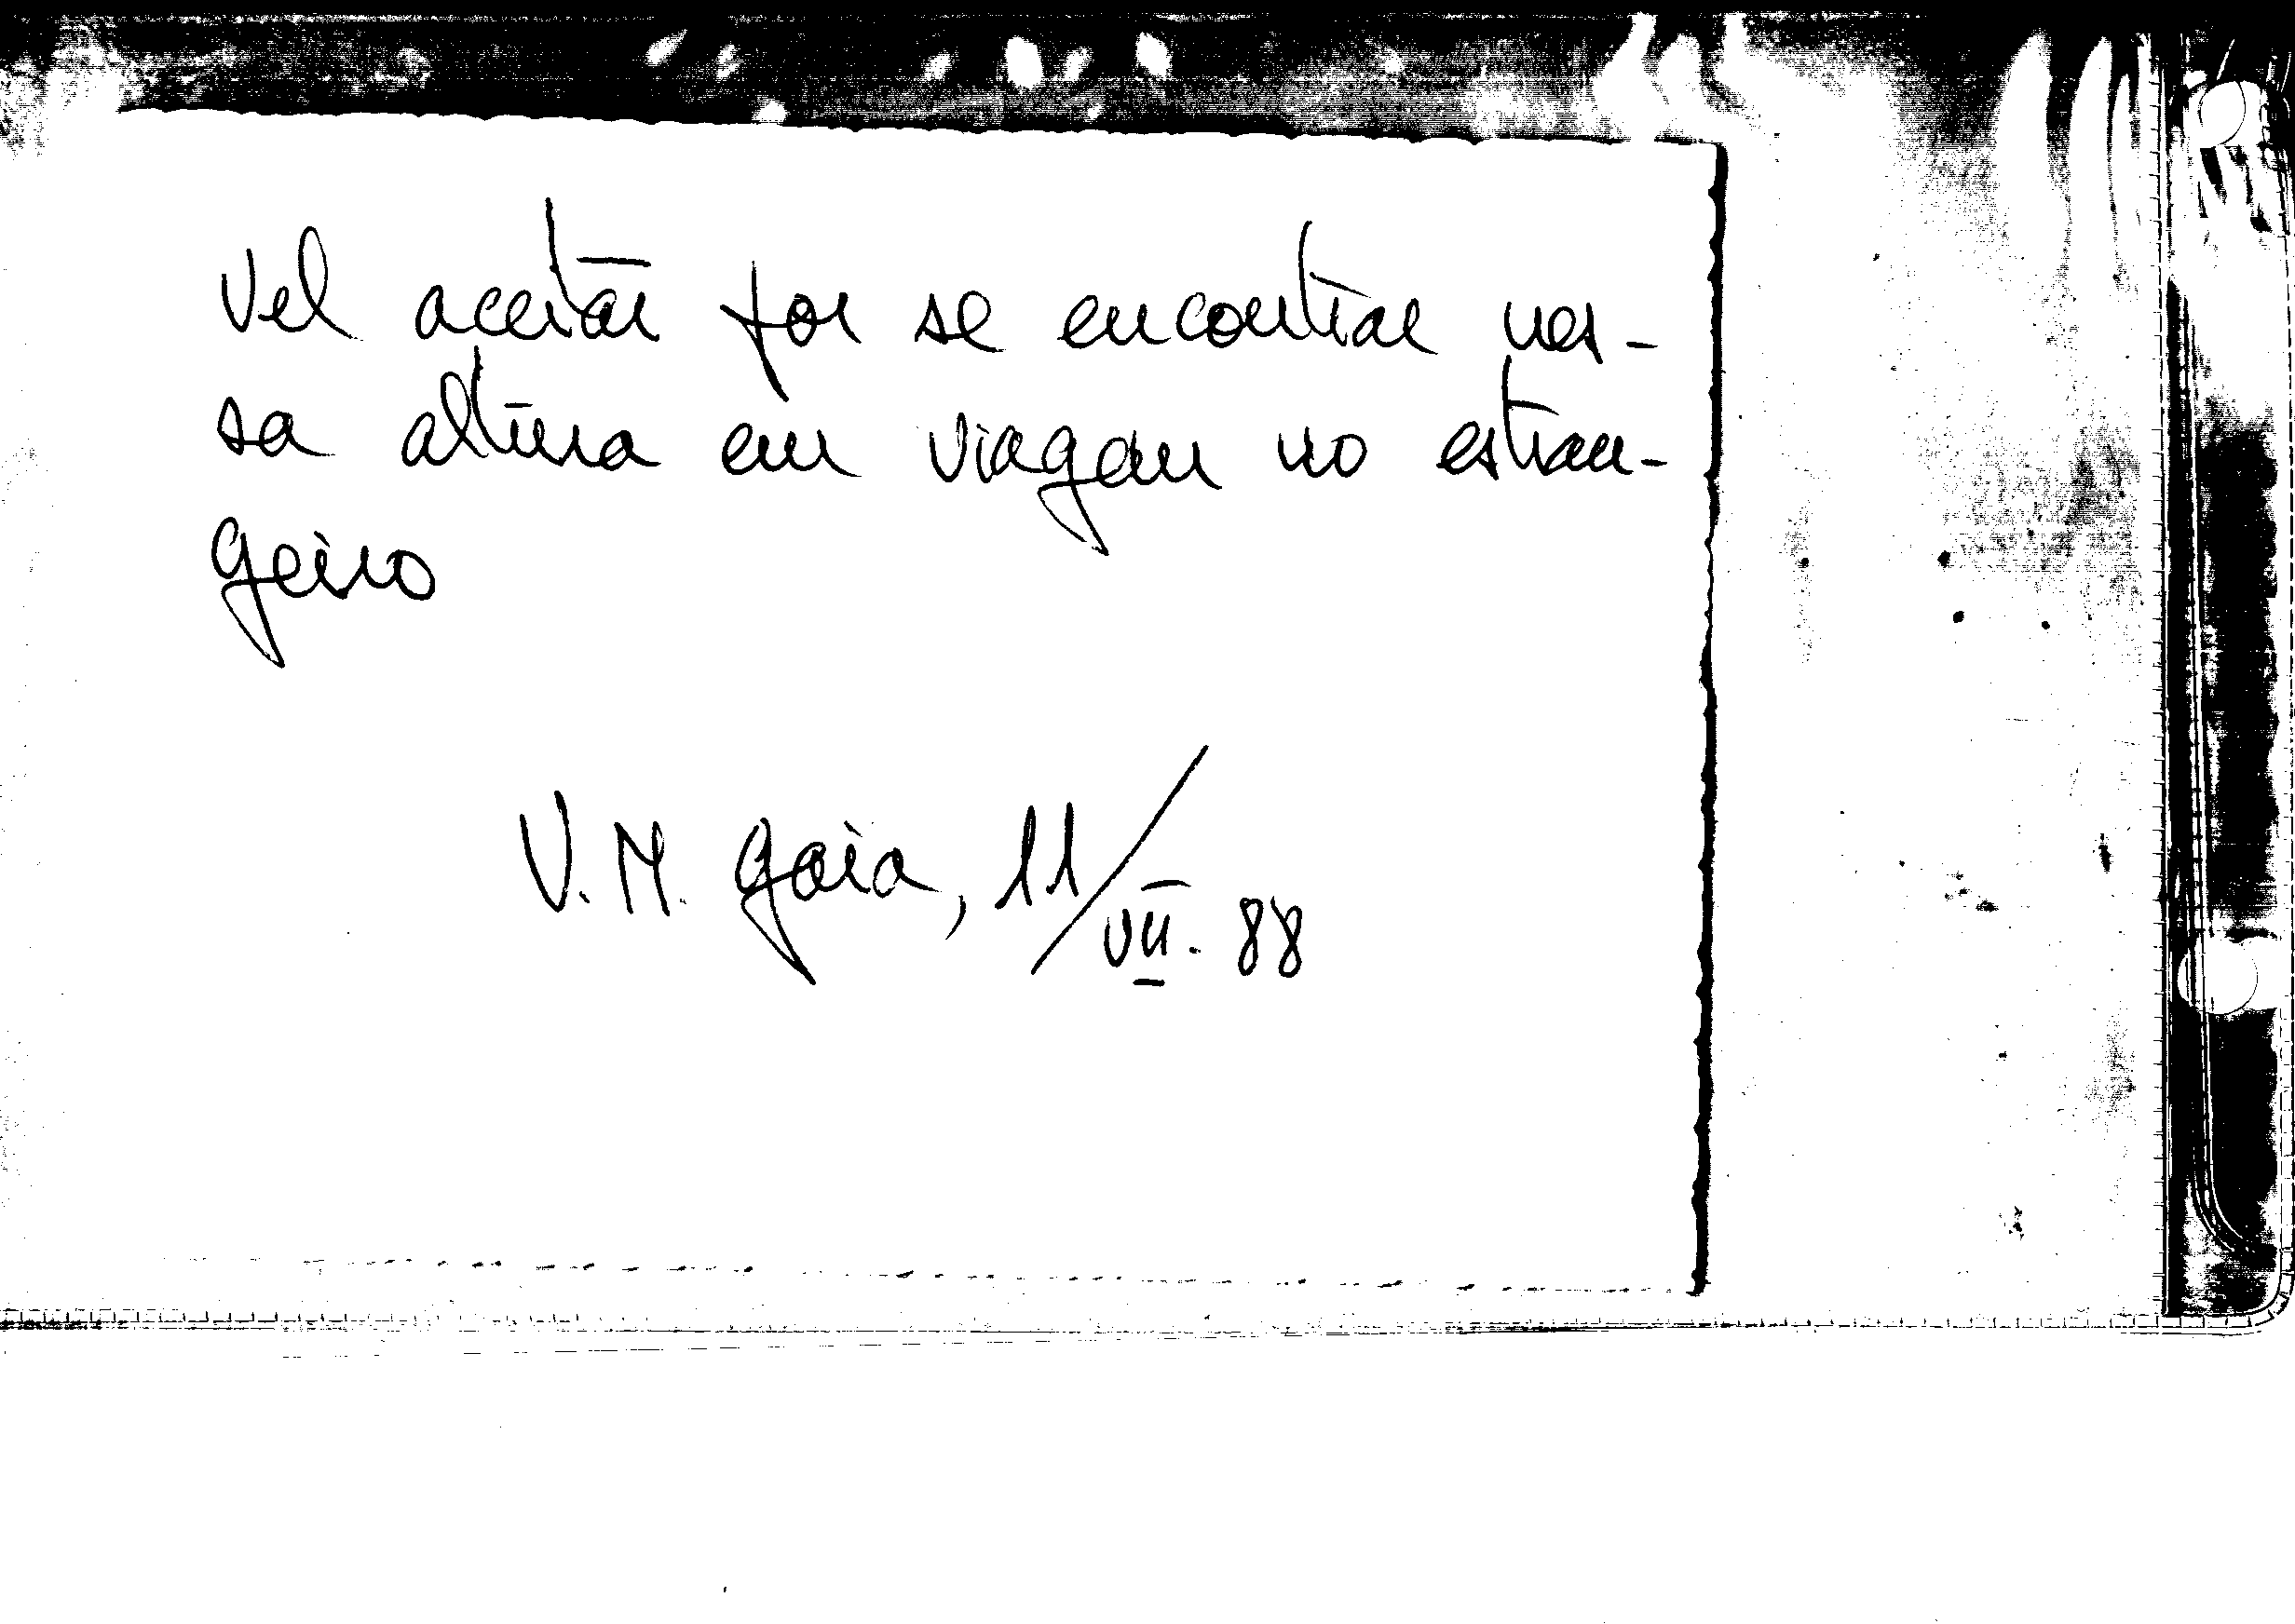 vel aceitar por se encontrar nes-
sa altura em viagem no estran-
geiro
V. N. Gaia, 11/VII. 88